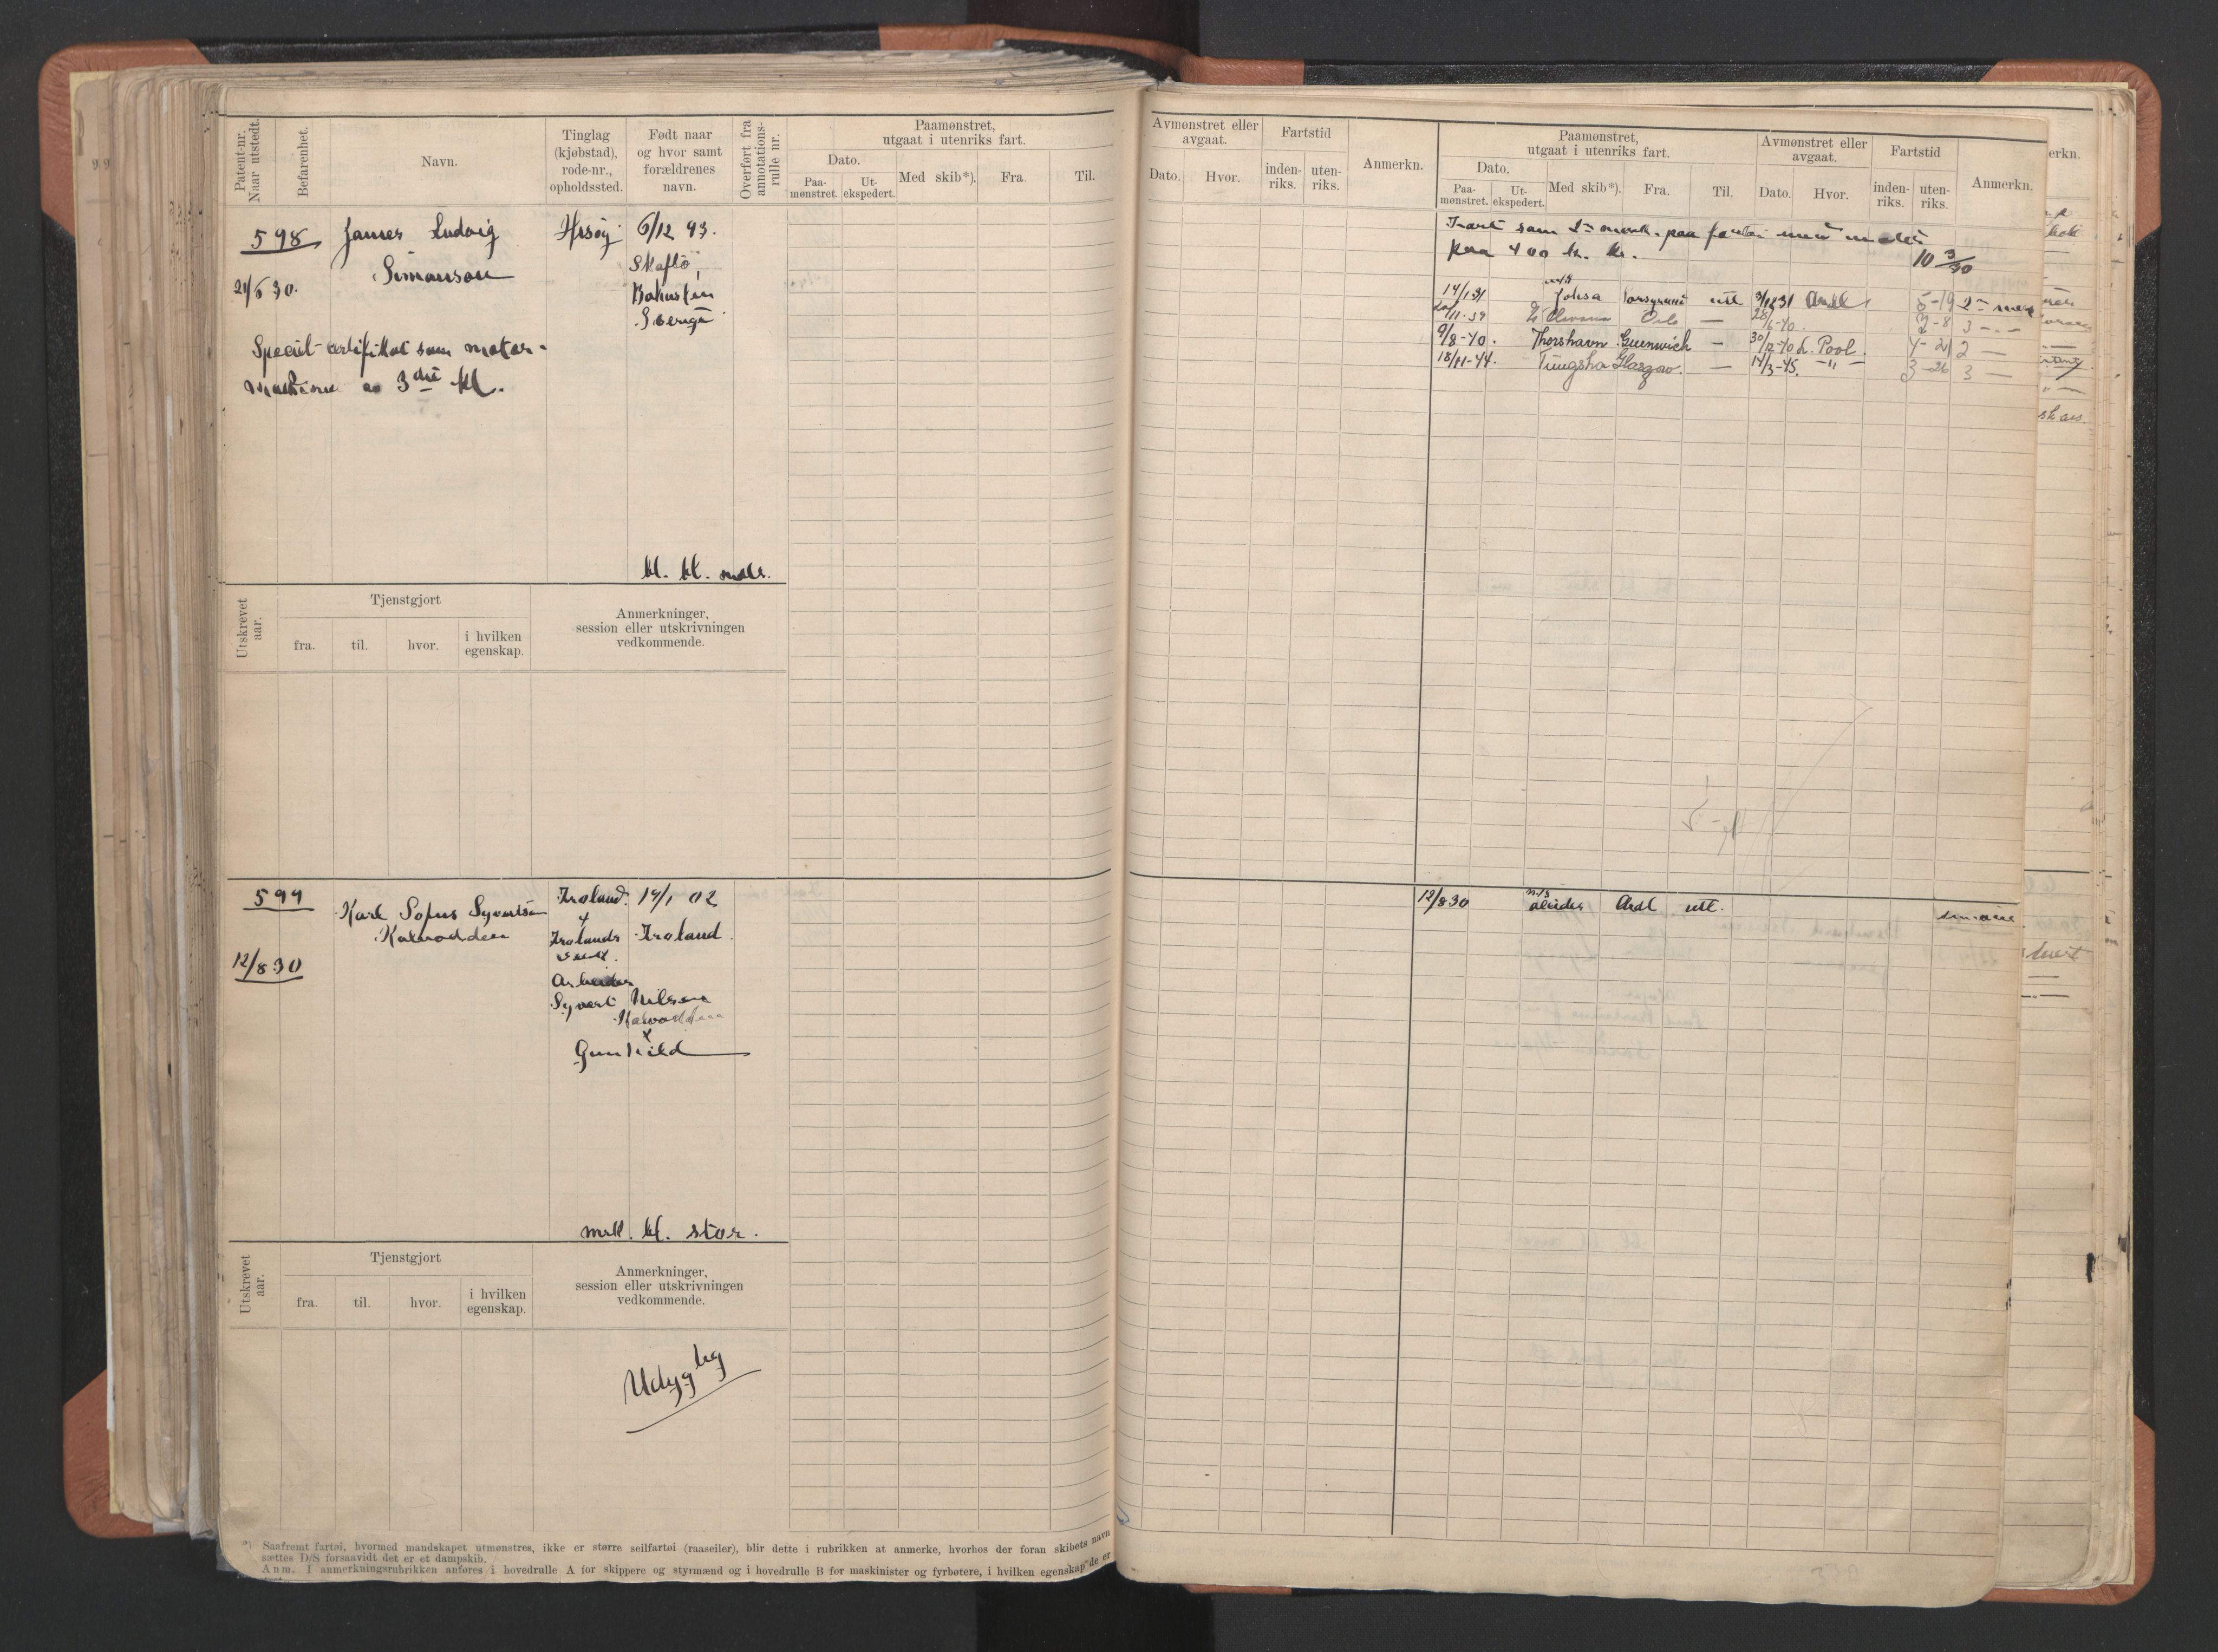 Patent-nr. Naar utstedt.
Befarenhet.
Navn.
Tinglag (kjøbstad), rode-nr., opholdssted.
Født naar og hvor samt forældrenes navn.
Overført fra annotations-rulle nr.
Paamønstret, utgaat i utenriks fart.
Dato.
Paa-mønstret.
Ut-ekspedert.
Med skib*).
Fra.
Til.
598
James Ludvig
Simonson
Hisøy
6/12 93.
Skaftö,
Sverige
21/6 30.
Specialcertifikat som motor-
maskinist av 3die kl.
kl. kl. mdls.
Utskrevet aar.
Tjenstgjort
fra.
til.
hvor.
i hvilken egenskap.
Anmerkninger, session eller utskrivningen vedkommende.
599
Karl Sofus Syvertsen
Froland
19/1 02
Frolands
Froland.
12/8 30
Arbeider
Syvert Nilsen
Gunhild
mdl. kl. stor.
Utskrevet aar.
Tjenstgjort
fra.
til.
hvor.
i hvilken egenskap.
Anmerkninger, session eller utskrivningen vedkommende.
Saafremt fartøi, hvormed mandskapet utmønstres, ikke er større seilfartøi (raaseiler), blir dette i rubrikken at anmerke, hvorhos der foran skibets navn
sættes D/S forsaavidt det er et dampskib.
Anm. I anmerkningsrubrikken anføres i hovedrulle A for skippere og styrmænd og i hovedrulle B for maskinister og fyrbøtere, i hvilken egenskap de er
Avmønstret eller avgaat.
Dato.
Hvor.
Fartstid
inden-riks.
uten-riks.
Anmerkn.
Paamønstret, utgaat i utenriks fart.
Dato.
Paa-mønstret.
Ut-ekspedert.
Med skib*).
Fra.
Til.
Avmønstret eller avgaat.
Dato.
Hvor.
Fartstid
inden-riks.
uten-riks.
Anmerkn.
erkn.
paa 400 10 3/30
14/1 31 m/s Johsa utl 31 Ardl 5-19
11-39 Oslo — 28/6-40. 7-8 3 —
9/8-40. Thorshavn Greenwich — 30/12-40 L. Pool. 4-21 2 —
18/11-44. Tungsha Glasgow. — 14/3-45. —"— 3-26 3 —
12/8 30 m/s Ardl utl.